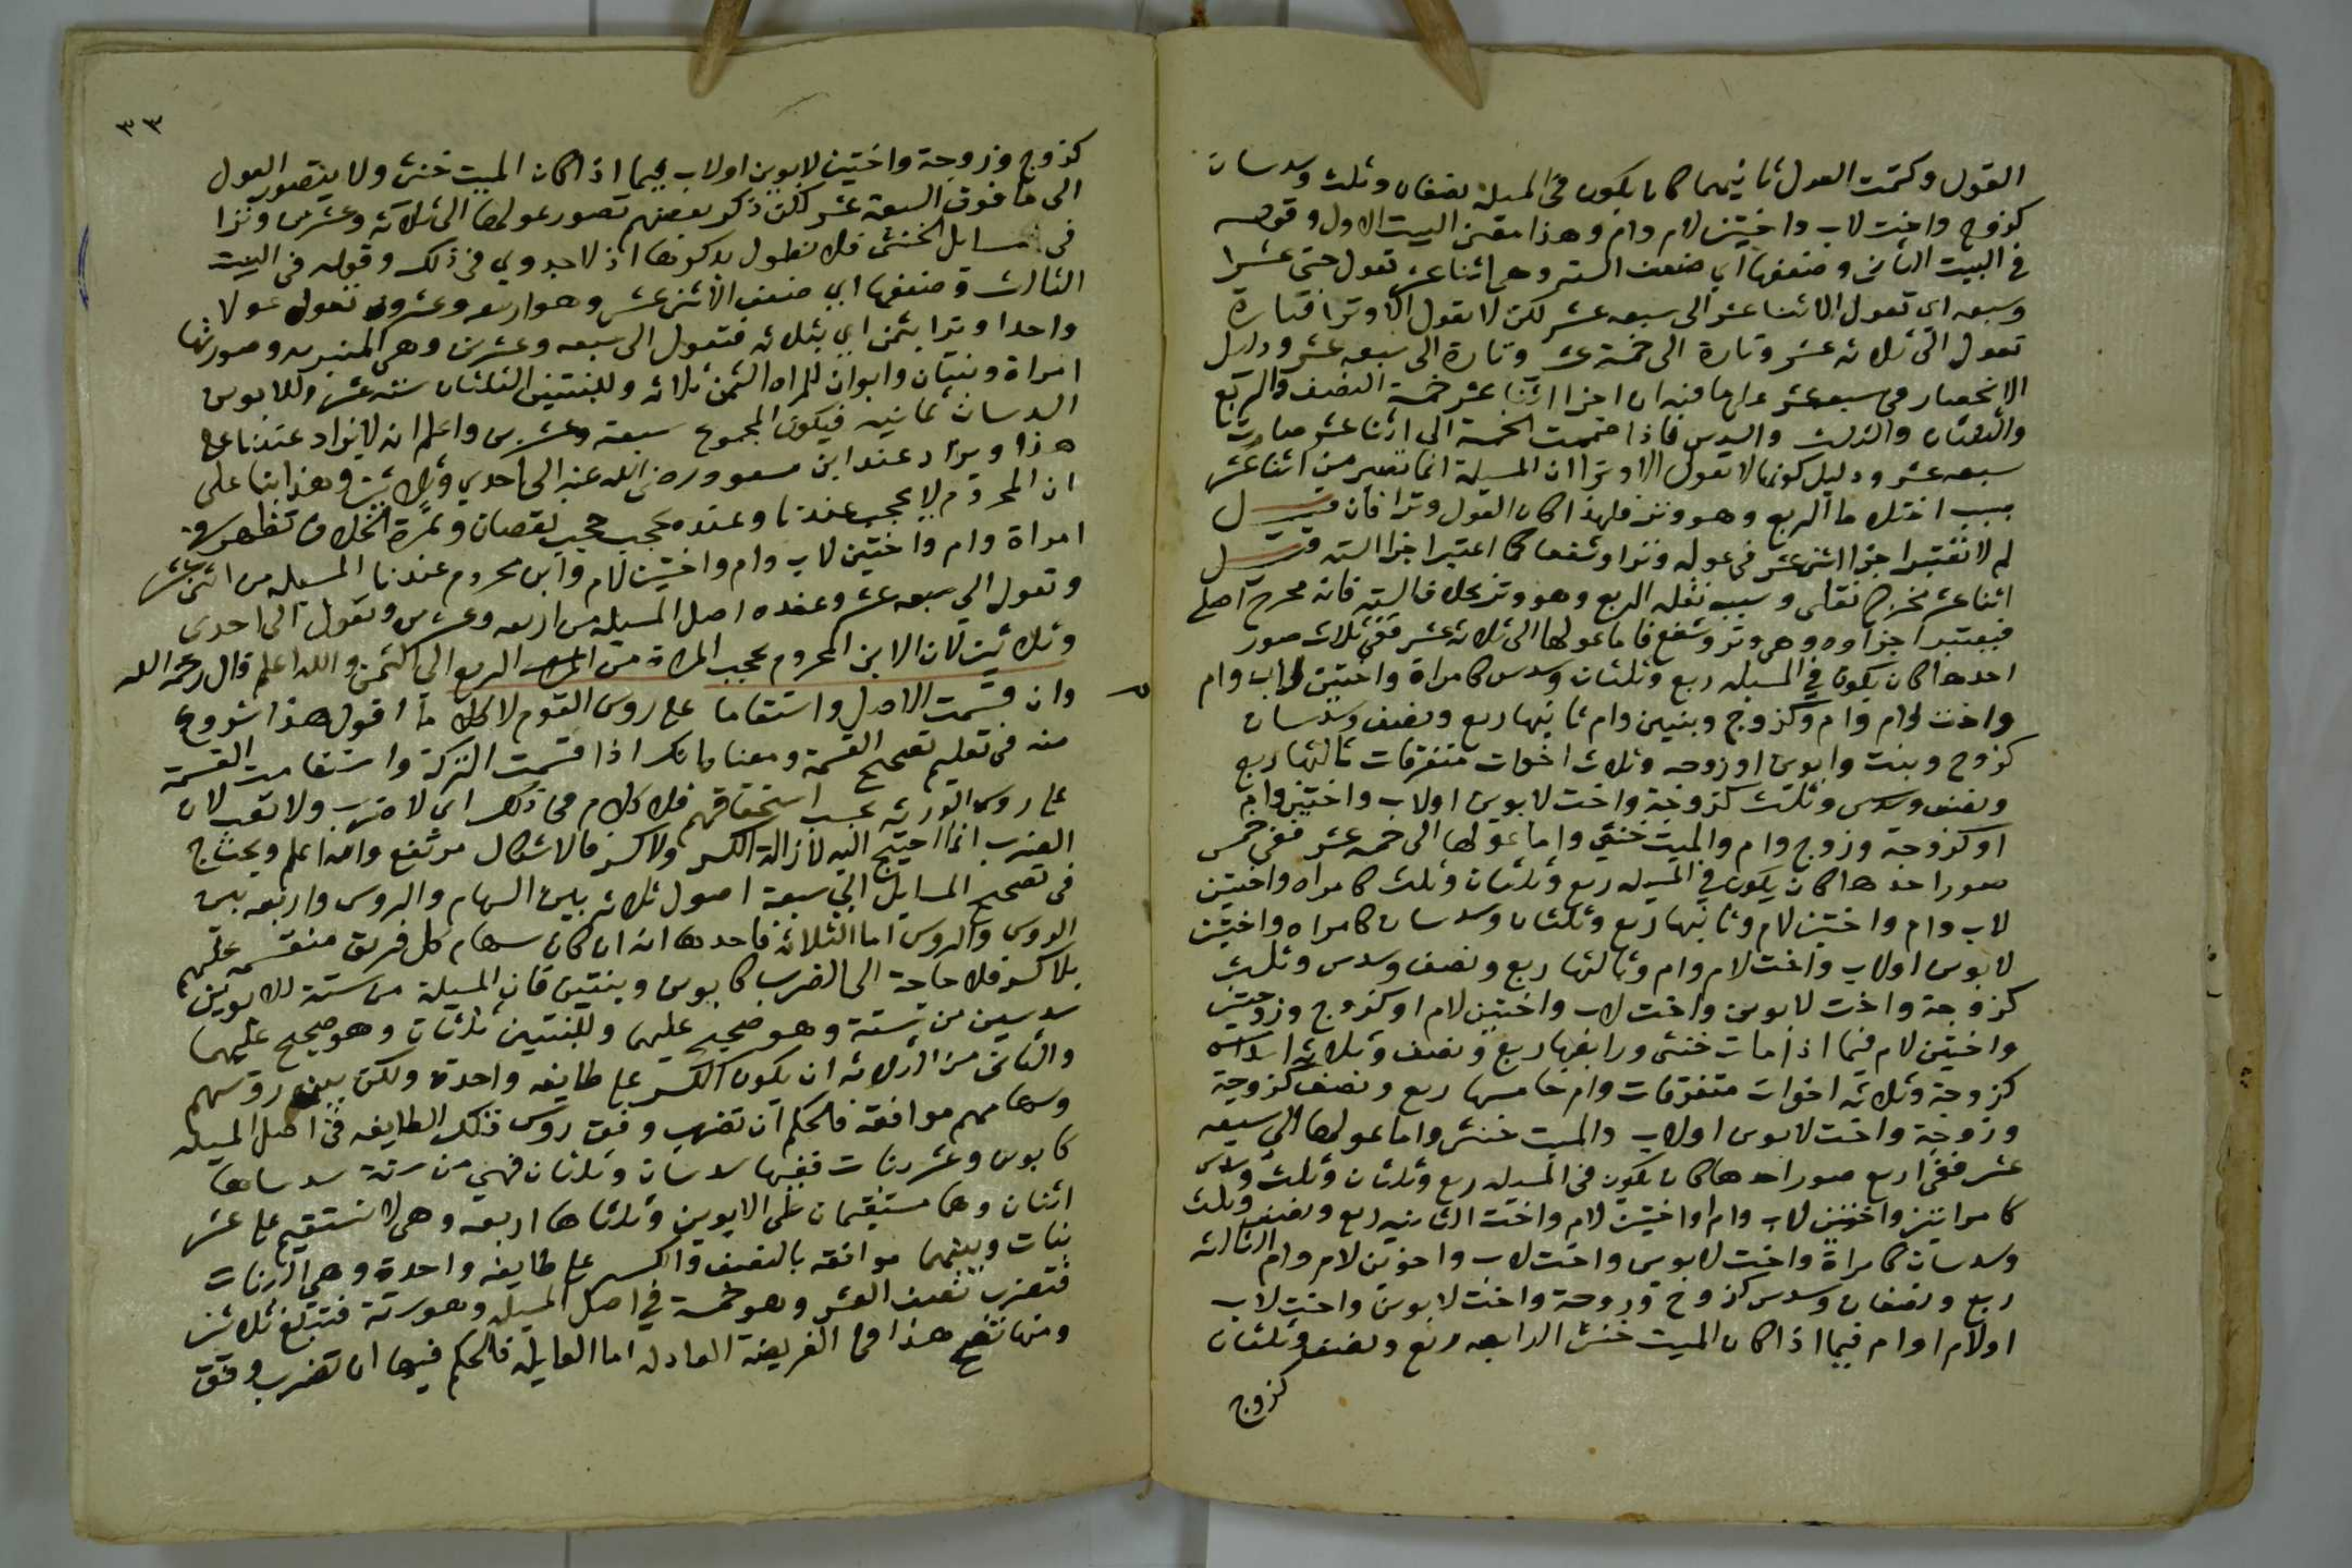 العول وكمت العول ثانيهما كان يكون في المسيلة نصفان وثلث وسدسان
كزوج واخت لاب واختين لام وام وهذا معنى البيت الاول وقوله
في البيت الثاني وضعفها اي ضعف الستة وهي اثنا عشر تعول حتى عشرا
وسبعه اي تعول الاثنا عشر الى سبعه عشر لكن لا تعول الا وترا فتارة
تعول الى ثلاثه عشر وتارة الى خمسة عشر وتارة الى سبعه عشر ودليل
الانحصار في سبعه عشر فيه ان اجزا اثنا عشر خمسة النصف والربع
والثلثان والثلث والسدس فاذا ضممت الخمسة الى اثنا عشر صارت
سبعه عشر ودليل كونها لا تعول الا وترا ان المسيلة انما تصير من اثنا عشر
بسبب اختلاط الربع وهو وتر فلهذا كان العول وترا فان قيل
لم لا تعتبر اجزا اثنى عشر في عوله وترا وشفعا كما اعتبر اجزا الستة
اثنا عشر مخرج وسبب الربع وهو وتر بخلاف الستة فانه مخرج اصلي
فيعتبر اجزاوه وهي وتر وشفع فاما عولها الى ثلاثه عشر ففي ثلاث صور
احدها كان يكون في المسيله ربع وثلثان وسدس كامراة واختين لاب وام
واخت لام وام وكزوج وبنتين وام ثانيها ربع ونصف وسدسان
كزوج وبنت وابوين او زوجه وثلاث اخوات متفرقات ثالثها ربع
ونصف وسدس وثلث كزوجة واخت لابوين اولاب واختين وام
او كزوجة وزوج وام والميت خنثى واما عولها الى خمسه عشر ففي خمس
صور احدها كان يكون في المسيله ربع وثلثان وثلث كامراه واختين
لاب وام واختين لام وثانيها ربع وثلثان وسدسان كامراه واختين
لابوين اولاب واخت لام وام وثالثها ربع ونصف وسدس وثلث
كزوجة واخت لابوين واخت لاب واختين لام او كزوج وزوجة
واختين لام فيما اذا مات خنثى ورابعها ربع ونصف وثلاثة اسداس
كزوجة وثلاثه اخوات متفرقات وام خامسها ربع ونصف كزوجة
وزوجة واخت لابوين اولاب والميت خنثى واما عولها الى سبعه
عشر ففي اربع صور احدها كان يكون في المسيله ربع وثلثان وثلث وسدس
كامراتين واختين لاب وام واختين لام واخت الثانيه ربع ونصف وثلث
وسدسان كامراة واخت لابوين واخت لاب واخوين لام وام الثالثه
ربع ونصفان وسدس كزوج وزوجة واخت لابوين واخت لاب
اولام او ام فيما اذا كان الميت خنثى الرابعه ربع ونصف وثلثان
كزوج
٣٣
كزوج وزوجة واختين لابوين اولاب فيما اذا كان الميت خنثى ولا يتصور العول
الى ما فوق السبعة عشر لكن ذكر بعضهم تصور عولها الى ثلاثه وعشرين وترا
في مسايل الخنثى فلا نطول بذكرها اذ لا جدوي في ذلك وقوله في البيت
الثالث وضعفها اي ضعف الاثنى عشر وهو اربعه وعشرون تعول عولا
واحدا وترا بثمن اي بثلاثه فتعول الى سبعه وعشرين وهي المنبريه وصورتها
امراة وبنتان وابوان للمراه الثمن ثلاثه وللبنتين الثلثان ستة عشر وللابوين
السدسان ثمانيه فيكون المجموع سبعة وعشرين واعلم انه لا يزاد عندنا على
هذا ويزاد عند ابن مسعود رضى الله عنه الى احدي وثلاثين وهذا بنا على
ان المحروم لا يحجب عندنا وعنده يحجب حجب نقصان وثمرة الخلاف تظهر في
امراة وام واختين لاب وام واختين لام وابن محروم عندنا المسيله من اثنى عشر
وتعول الى سبعه عشر وعنده اصل المسيله من اربعه وعشرين وتعول الى احدى
وثلاثين لان الابن المحروم يحجب المراة من الربع الى الثمن والله اعلم قال رحمه الله
وان قسمت الاصل واستقاما على روس القوم لا كلاما اقول هذا شروع
منه في تعليم تصحيح القسمة ومعناه انك اذا قسمت التركة واستقامت القسمة
على روس الورثه بحسب استحقاقهم فلا كلام في ذلك اى لا ضرب ولا تعب لان
الضرب انما احتيج اليه لازالة الكسر ولا كسر فالاشكال مرتفع والله اعلم ويحتاج
في تصحيح المسايل الى سبعة اصول ثلاثه بين السهام والروس واربعه بين
الروس والروس اما الثلاثه فاحدها انه ان كان سهام كل فريق منقسمه عليهم
بلا كسر فلا حاجة الى الضرب كابوين وبنتين فان المسيلة من ستة للابوين
سدسين من ستة وهو صحيح عليهما وللبنتين ثلثان وهو صحيح عليهما
والثاني من الثلاثه ان يكون الكسر على طايفه واحدة ولكن بين روسهم
وسهامهم موافقة فالحكم ان تضرب وفق روس تلك الطايفه في اصل المسيله
كابوين وعشر بنات ففيها سدسان وثلثان فهي من ستة سدساها
اثنان وهما مستقيمان على الابوين وثلثاها اربعه وهي لا تستقيم على عشر
بنات وبينهما موافقه بالنصف والكسر على طايفه واحدة وهي البنات
فتضرب نصف العشر وهو خمسة في اصل المسيله وهو ستة فتبلغ ثلاثين
ومنها تصح هذا في الفريضة العادله اما العايله فالحكم فيها ان تضرب وفق